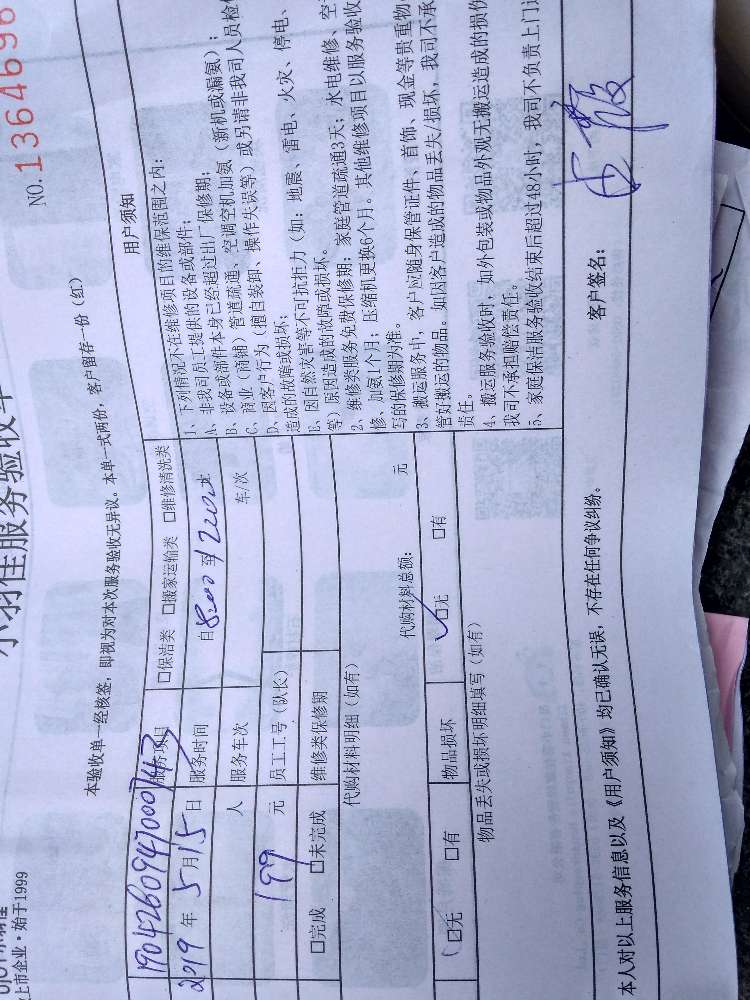 小羽佳服务验收单
NO.1364696
上市企业·始于1999
本验收单一经核签，即视为对本次服务验收无异议。本单一式两份，客户留存一份（红）
190426094700074
服务项目
□保洁类 □搬家运输类 □维修清洗类
2019 年 5 月 15 日
服务时间
自 8:00 至
人
服务车次
车/次
199 元
员工工号（队长）
□完成 □未完成
维修类保修期
代购材料明细（如有）
代购材料总额： 元
□无 □有
物品损坏
□无 □有
物品丢失或损坏明细填写（如有）
用户须知
1、下列情况不在维修项目的维保范围之内：
A、非我司员工提供的设备或部件；
B、设备或部件本身已经超过出厂保修期；
C、商业（商铺）管道疏通、空调空机加氨（新机或漏氨）；
D、因客户行为（擅自装卸、操作失误等）或另请非我司人员检
造成的故障或损坏；
E、因自然灾害等不可抗拒力（如：地震、雷电、火灾、停电、
等）原因造成的故障或损坏。
2、维修类服务免费保修期：家庭管道疏通3天；水电维修、空
修、加氨1个月；压缩机更换6个月。其他维修项目以服务验收
写的保修期为准。
3、搬运服务中，客户应随身保管证件、首饰、现金等贵重物
管好搬运的物品。如因客户造成的物品丢失/损坏，我司不承
责任。
4、搬运服务验收时，如外包装或物品外观无搬运造成的损伤
我司不承担赔偿责任。
5、家庭保洁服务验收结束后超过48小时，我司不负责上门
本人对以上服务信息以及《用户须知》均已确认无误，不存在任何争议纠纷。
客户签名：